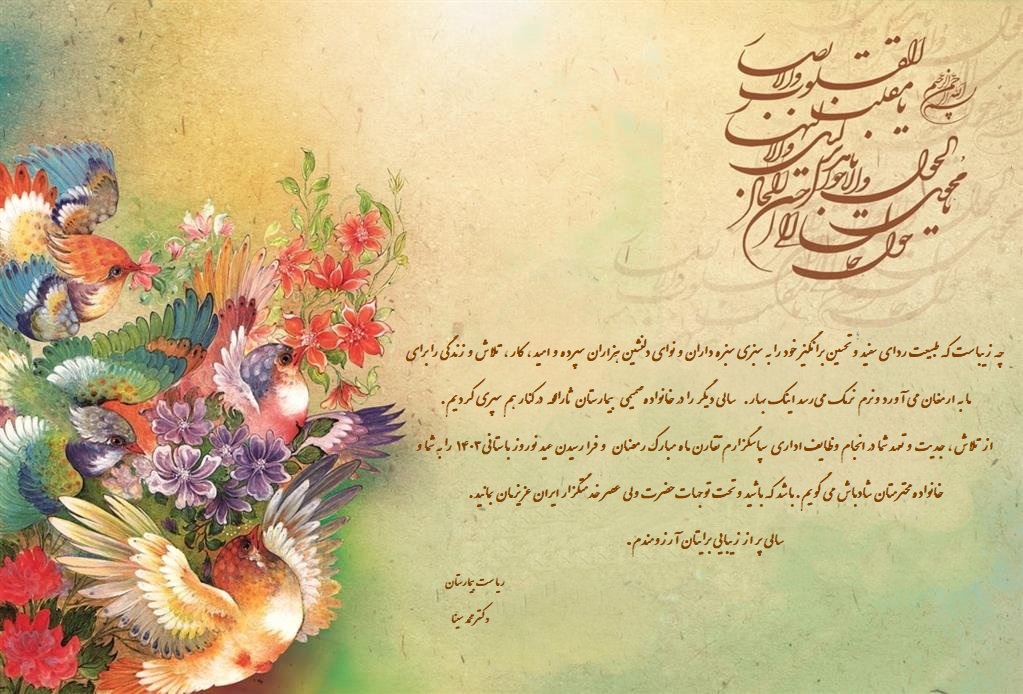 بسم الله الرحمن الرحیم
یا مقلب القلوب و الابصار
یا مدبر اللیل و النهار
یا محول الحول و الاحوال
حول حالنا الی احسن الحال
چه زیباست که طبیعت ردای سفید و تحسین برانگیز خود را به سبزی سبزه داران و نوای دلنشین هزاران سپرده و امید ، کار ، تلاش و زندگی را برای
ما به ارمغان می آورد و نرم نرمک می رسد اینک بهار . سالی دیگر را در خانواده صمیمی بیمارستان ثاراله در کنار هم سپری کردیم .
از تلاش ، جدیت و تعهد شما در انجام وظایف اداری سپاسگزارم تقارن ماه مبارک رمضان و فرا رسیدن عید نوروز باستانی ۱۴۰۳ را به شما و
خانواده محترمتان شادباش می گویم . باشد که باشید و تحت توجهات حضرت ولی عصر خدمتگزار ایران عزیزمان بمانید .
سالی پر از زیبایی برایتان آرزومندم .
ریاست بیمارستان
دکتر محمد سینا